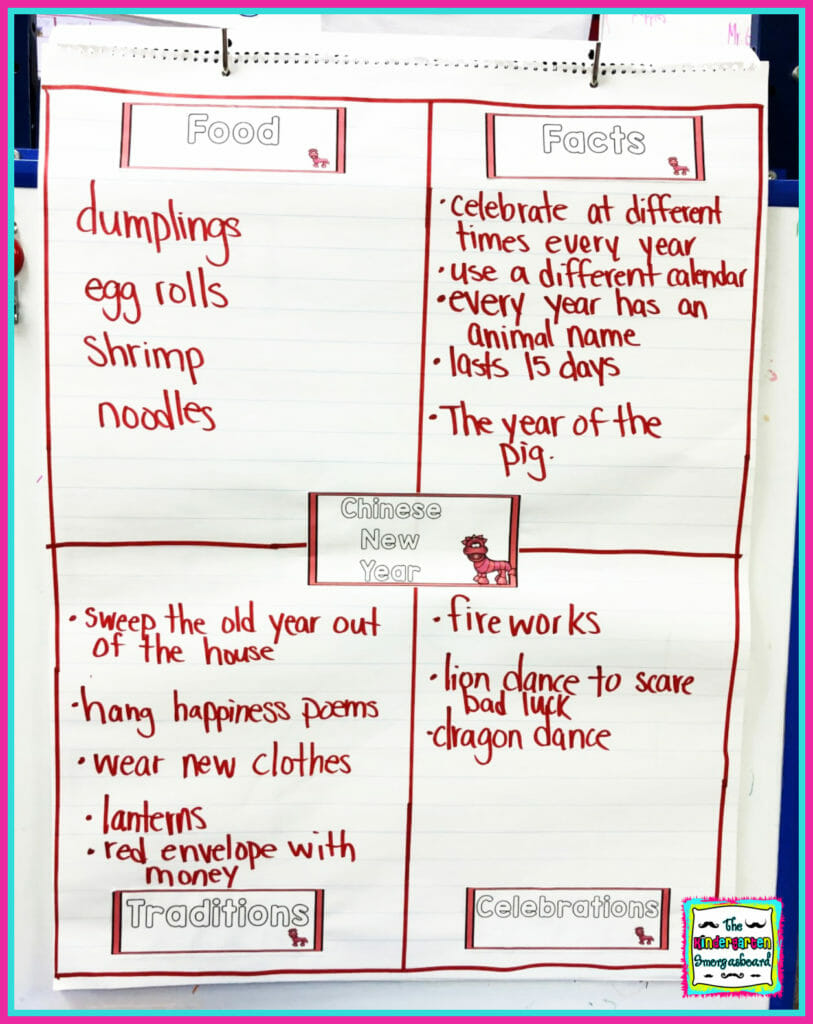 Food
dumplings
egg rolls
shrimp
noodles
Facts
• celebrate at different
times every year
• use a different calendar
• every year has an
animal name
• lasts 15 days
• The year of the
pig.
Chinese
New
Year
• sweep the old year out
of the house
• hang happiness poems
• wear new clothes
• lanterns
• red envelope with
money
Traditions
• fireworks
• lion dance to scare
bad luck
• dragon dance
Celebrations
The
Kindergarten
Smorgasboard